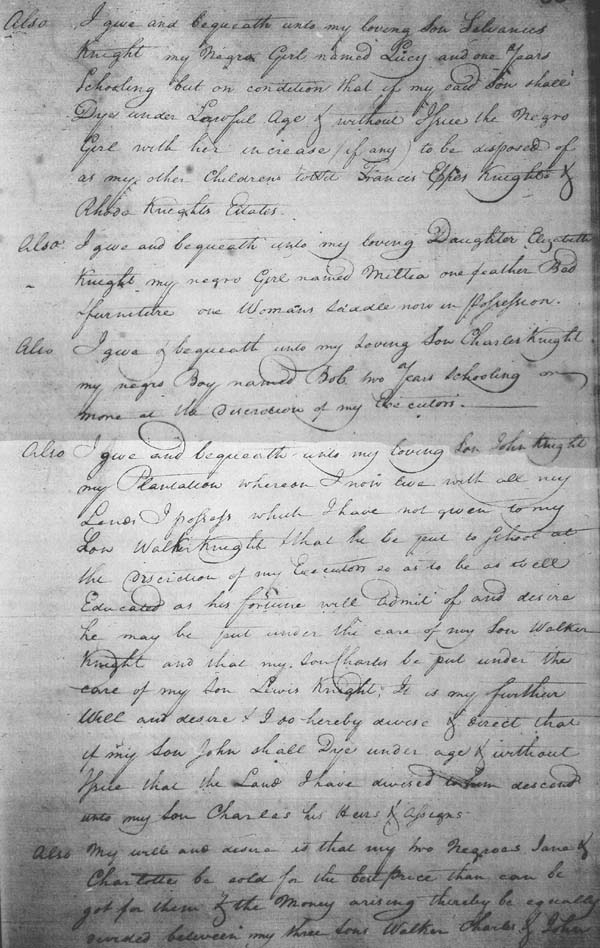 Also I give and bequeath unto my loving Son Silvanus
Knight my Negro Girl named Lucy and one Years
Schooling but on condition that if my said Son shall
Dye under Lawful Age & without Issue the Negro
Girl with her increase (if any) to be disposed of
as my other Childrens towit Frances Eppes Knights &
Rhoda Knights Estates.
Also I give and bequeath unto my loving Daughter Elizabeth
Knight my negro Girl named Millia one feather Bad
& furniture one Womans Saddle now in possession.
Also I give & bequeath unto my Loving Son Charles Knight
my negro Boy named Bob two Years Schooling or
more at the Discretion of my Executors.
Also I give and bequeath unto my loving Son John Knight
my Plantation whereon I now live with all my
Lands I possess which I have not given to my
Son Walker Knight & that he be put to School at
the Discretion of my Executors so as to be as well
Educated as his fortune will admit of and desire
he may be put under the care of my Son Walker
Knight and that my Son Charles be put under the
care of my Son Lewis Knight; It is my further
Will and desire & I do hereby divise & direct that
if my Son John shall Dye under age & without
Issue that the Land I have divised to him descend
unto my Son Charles his Heirs & Assigns
Also My will and desire is that my two Negroes Jane &
Charlotte be sold for the best price than can be
got for them & the Money arising thereby be equally
divided between my three Sons Walker Charles & John